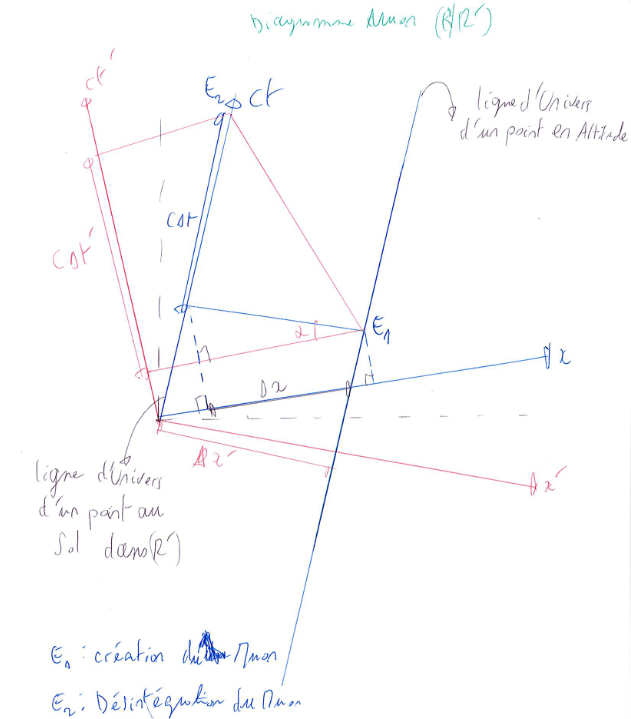 Diagramme Muon (R/R')
ct'
E₂
ct
ligne d'Univers
d'un point en Altitude
cΔt
cΔt'
α
E₁
x
Δx
Δx'
x'
ligne d'Univers
d'un point au
Sol dans (R')
E₁ : création du Muon
E₂ : Désintégration du Muon